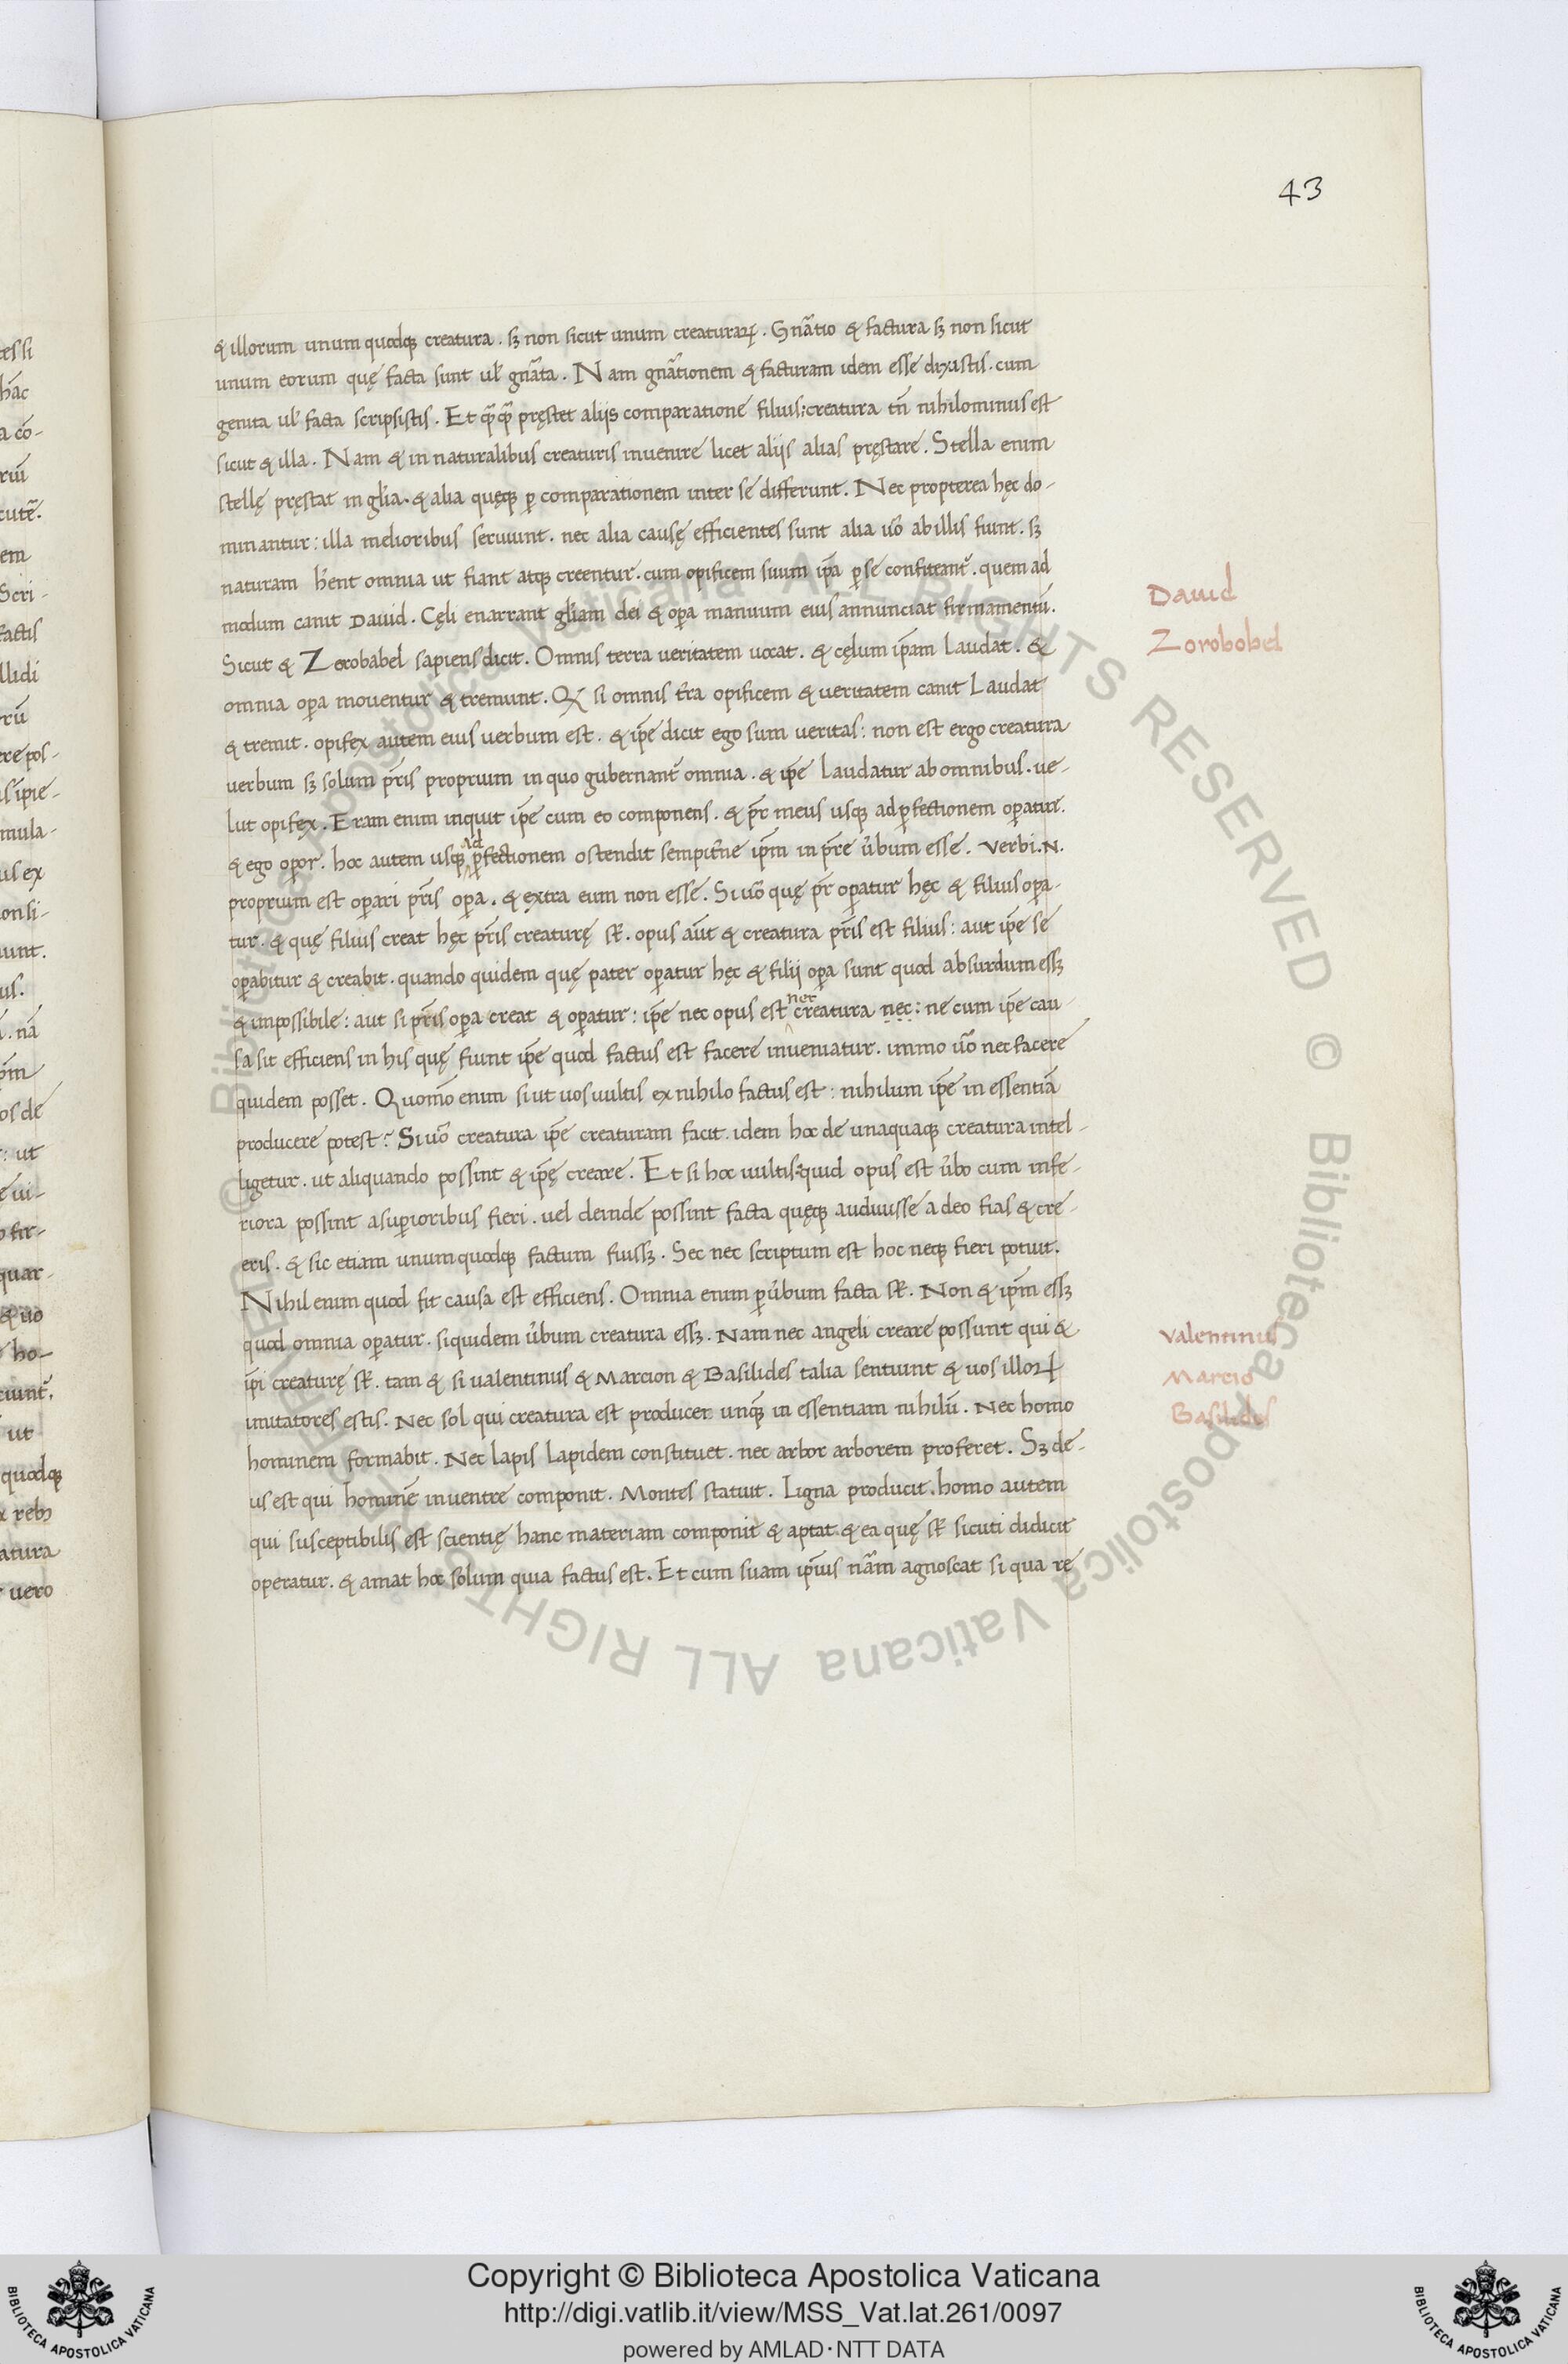 43
& illorum unum quodq; creatura. sꝫ non sicut unum creaturaꝝ. Gnãtio & factura sꝫ non sicut
unum eorum quę facta sunt ul' gnãta. Nam gnãtionem & facturam idem esse dixistis. cum
genita ul' facta scripsistis. Et q̃q̃ pręstet aliis comparatione filius: creatura tñ nihilominus est
sicut & illa. Nam & in naturalibus creaturis invenire licet aliis alias pręstare. Stella enim
stellę pręstat in gl'ia. & alia quęq; ꝑ comparationem inter se differunt. Nec propterea hęc do-
minantur: illa melioribus serviunt. nec alia causę efficientes sunt alia uõ ab illis fiunt. sꝫ
naturam h'ent omnia ut fiant atq; creentur. cum opificem suum ip̃a ꝑ se confiteant᷑. quem ad
modum canit David. Cęli enarrant gl'iam dei & oꝑa manuum eius annunciat firmamentũ.
Sicut & Zorobabel sapiens dicit. Omnis terra veritatem vocat. & cęlum ip̃am Laudat. &
omnia oꝑa moventur & tremunt. Qđ si omnis t̃ra opificem & veritatem canit Laudat
& tremit. opifex autem eius verbum est. & ip̃e dicit ego sum veritas: non est ergo creatura
verbum sꝫ solum p̃ris proprium in quo gubernant᷑ omnia. & ip̃e Laudatur ab omnibus. ve-
lut opifex. Eram enim inquit ip̃e cum eo componens. & p̃r meus usq; ad ꝑfectionem oꝑatur.
& ego oꝑor. hoc autem usq; ad ꝑfectionem ostendit sempit̃ne ip̃m in p̃re u̾bum esse. verbi.N.
proprium est oꝑari p̃ris oꝑa. & extra eum non esse. Si uõ quę p̃r oꝑatur hęc & filius oꝑa-
tur. & quę filius creat hęc p̃ris creaturę sũt. opus aũt & creatura p̃ris est filius: aut ip̃e se
oꝑabitur & creabit. quando quidem quę pater oꝑatur hęc & filii oꝑa sunt quod absurdum essꝫ
& impossibile: aut si p̃ris oꝑa creat & oꝑatur: ip̃e nec opus est nec creatura nec: ne cum ip̃e cau-
sa sit efficiens in his quę fiunt ip̃e quod factus est facere inveniatur. immo uõ nec facere
quidem posset. Quomõ enim si ut vos vultis ex nihilo factus est: nihilum ip̃e in essentiã
producere potest? Si uõ creatura ip̃e creaturam facit. idem hoc de unaquaq; creatura intel-
ligetur. ut aliquando possint & ip̃ę creare. Et si hoc vultis: quid opus est u̾bo cum infe-
riora possint a suꝑioribus fieri. vel deinde possint facta quęq; audivisse a deo fias & cre-
eris. & sic etiam unumquodq; factum fuissꝫ. Sec nec scriptum est hoc neq; fieri potuit.
Nihil enim quod fit causa est efficiens. Omnia enim ꝑ u̾bum facta sũt. Non & ip̃m essꝫ
quod omnia oꝑatur. siquidem u̾bum creatura essꝫ. Nam nec angeli creare possunt qui &
ip̃i creaturę sũt. tam & si valentinus & Marcion & Basilides talia sentiunt & vos illoꝝ
imitatores estis. Nec sol qui creatura est producet unq̃ in essentiam nihilũ. Nec homo
hominem formabit. Nec lapis Lapidem constituet. nec arbor arborem proferet. Sꝫ de-
us est qui hominẽ in ventre componit. Montes statuit. Ligna producit. homo autem
qui susceptibilis est scientię hanc materiam componit & aptat. & ea quę sũt sicuti didicit
operatur. & amat hoc solum quia factus est. Et cum suam ip̃ius nãm agnoscat si qua re
David
Zorobobel
Valentinus
Marcio
Basilides
Copyright © Biblioteca Apostolica Vaticana
http://digi.vatlib.it/view/MSS_Vat.lat.261/0097
powered by AMLAD·NTT DATA
BIBLIOTECA APOSTOLICA VATICANA
BIBLIOTECA APOSTOLICA VATICANA